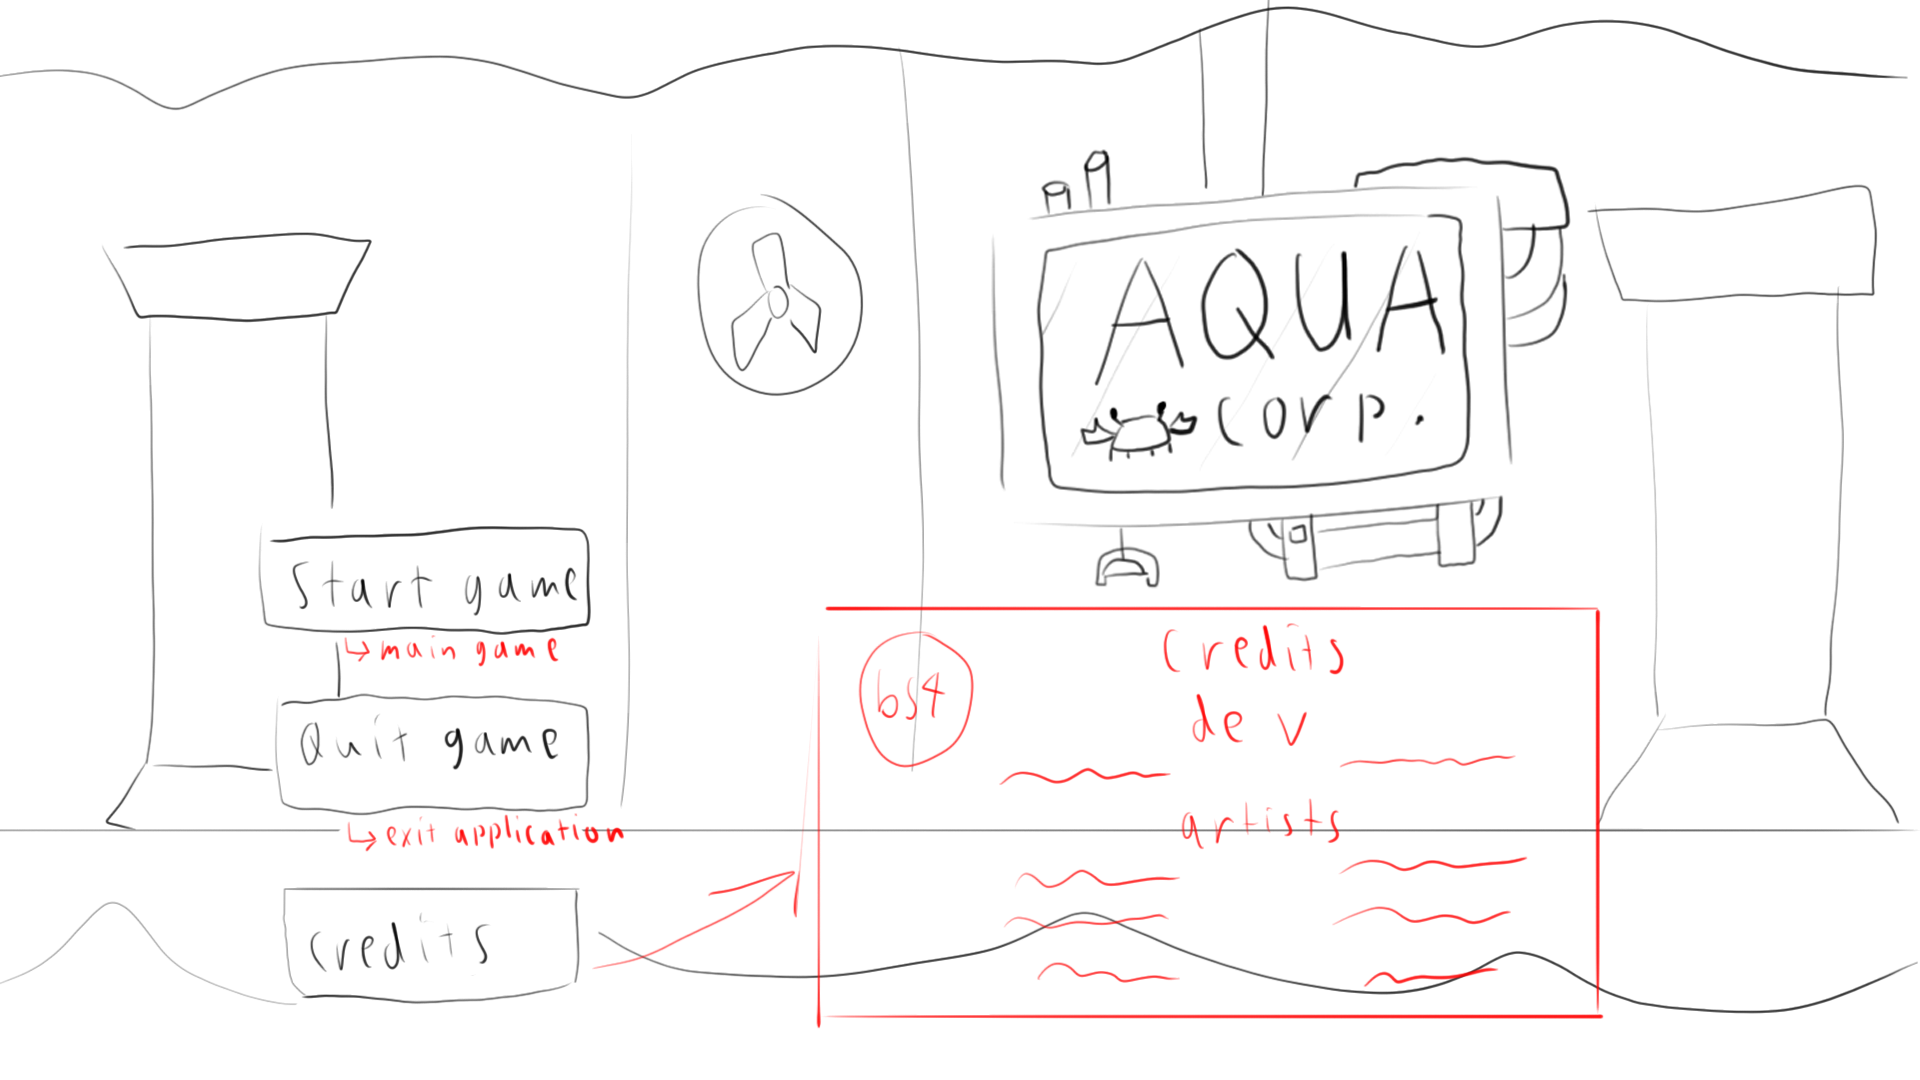 AQUA
corp.
Start game
main game
Quit game
exit application
Credits
bs4
Credits
dev
artists